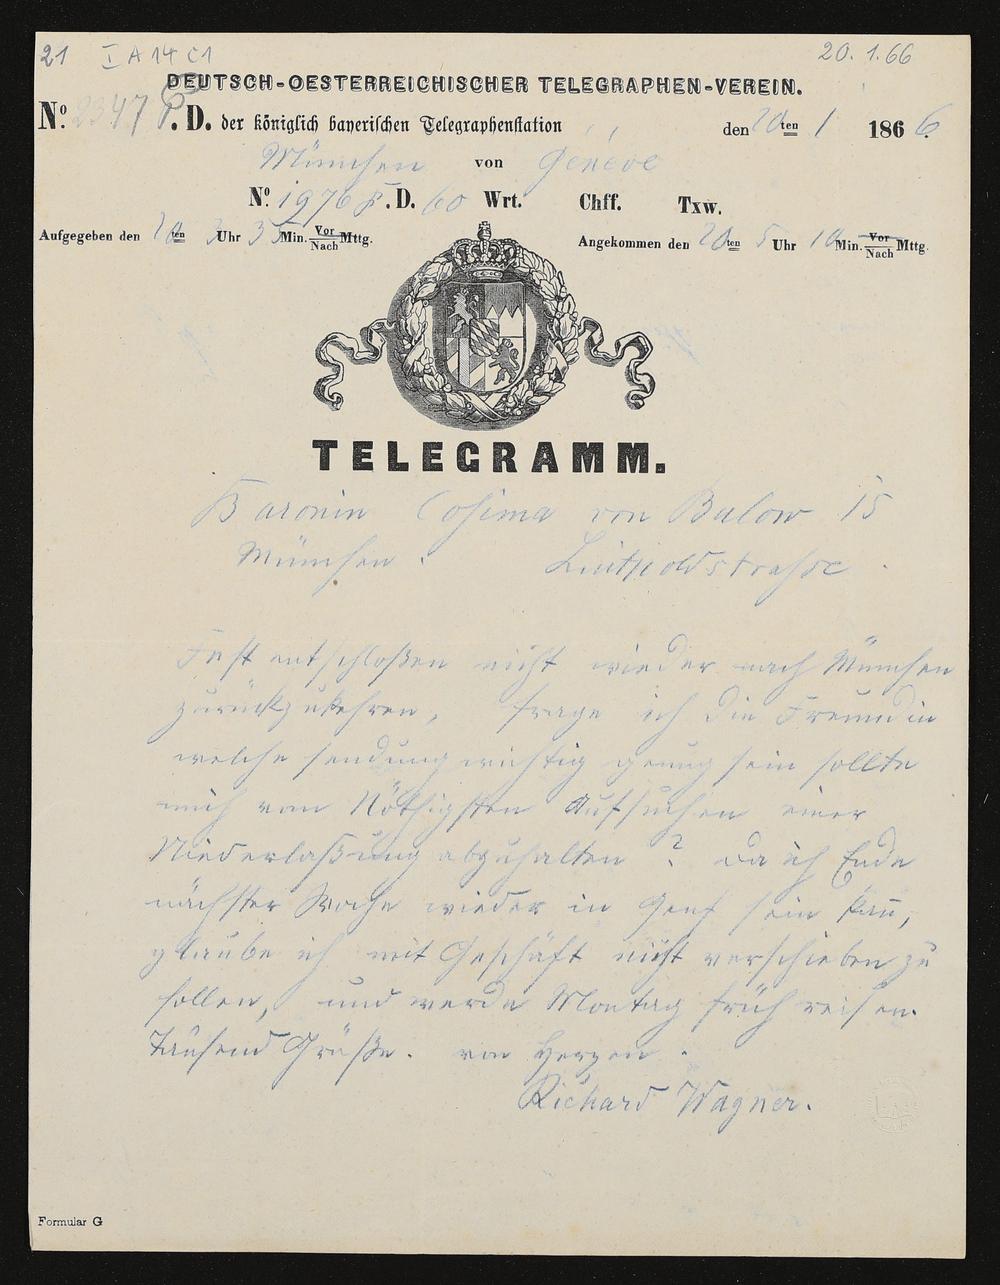 21 I A 14 c1 20.1.66
DEUTSCH-OESTERREICHISCHER TELEGRAPHEN-VEREIN.
No. 2347 P. D. der königlich bayerischen Telegraphenstation den 20ten 1 1866.
München von Genève
No. 1976 P. D. 60 Wrt. Chff. Txw.
Aufgegeben den 20ten 3 Uhr 35 Min. Vor/Nach Mttg. Angekommen den 20ten 5 Uhr 10 Min. Vor/Nach Mttg.
TELEGRAMM.
Baronin Cosima von Bulow 15
München. Luitpoldstraße.
Fest entschloßen nicht wieder nach München
zurückzukehren, frage ich die Freundin
welche sendung wichtig genug sein sollte
mich vom Nöthigsten Aufsuchen einer
Niederlaßung abzuhalten? Da ich Ende
nächster Woche wieder in Genf sein kann,
glaube ich mit Geschäft nicht verschieben zu
sollen, und werde Montag früh reisen.
Tausend Grüße. von Herzen.
Richard Wagner.
Formular G